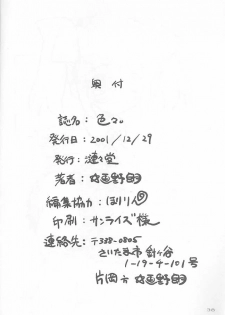 奥付
誌名：色々
発行日：2001/12/29
発行：漣々堂
著者：
編集協力：ほりりん
印刷：サンライズ様
連絡先：〒338-0805
さいたま市 針ヶ谷
1-19-4-101号
片岡方